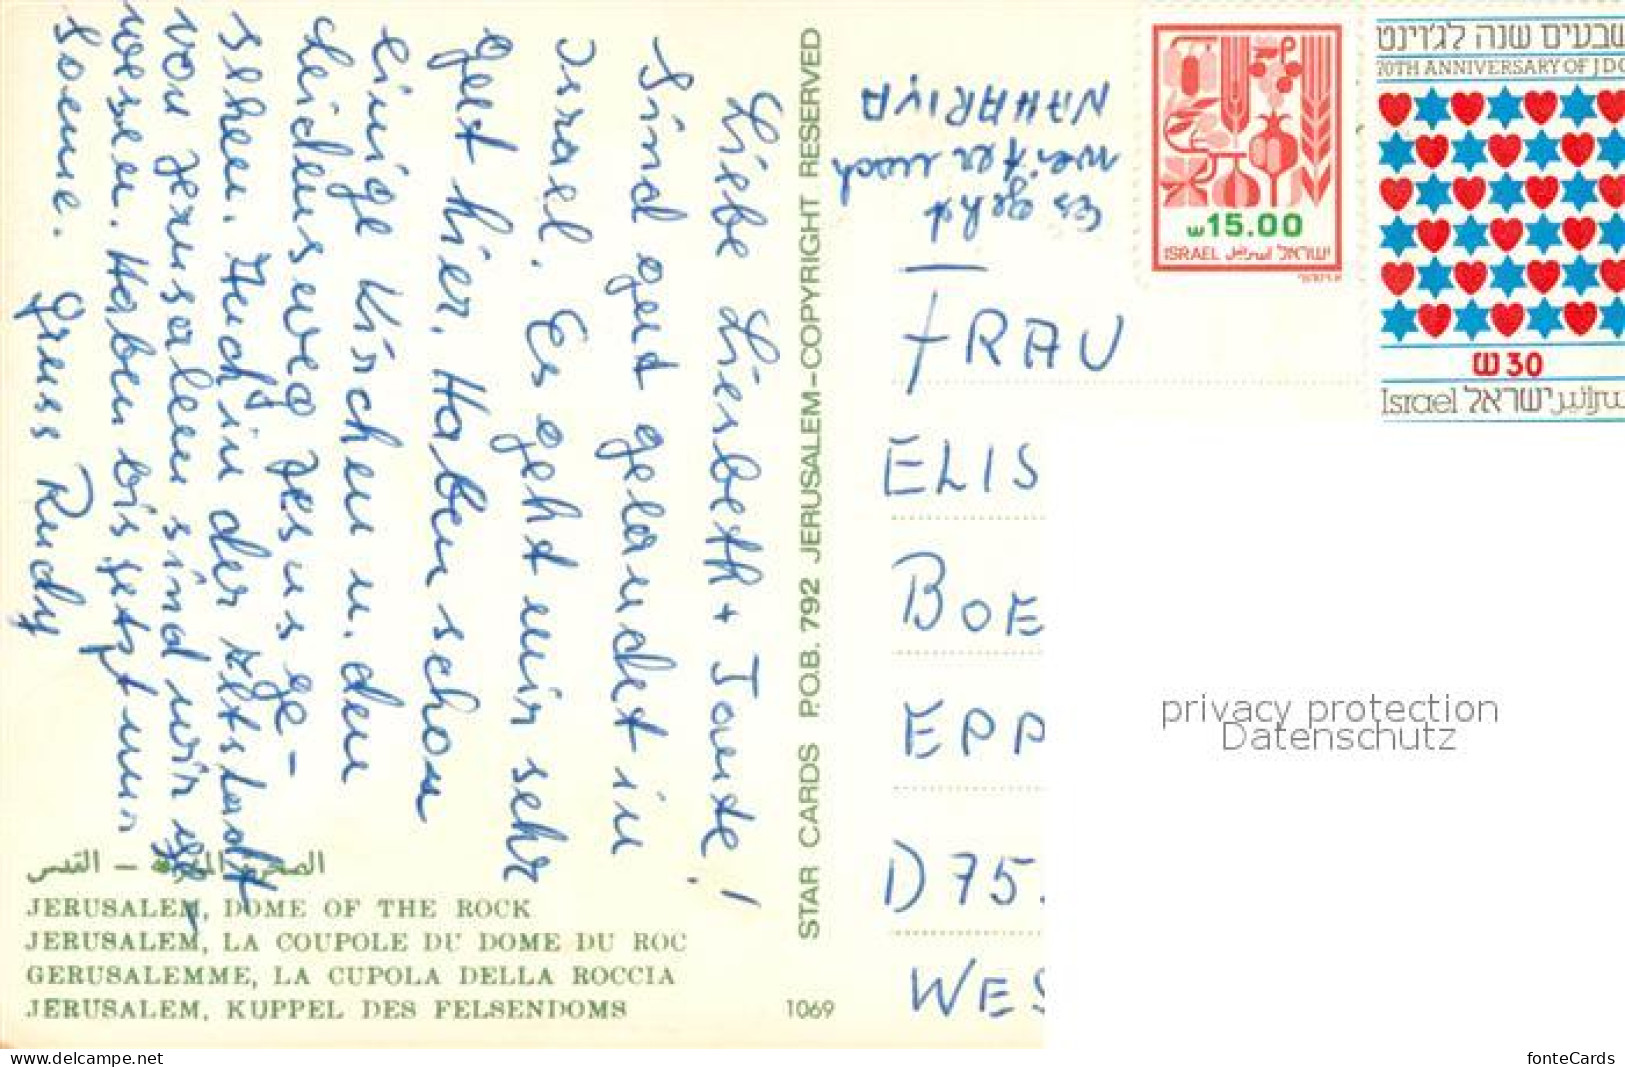 Liebe Liesbeth + Tante!
Sind gut gelandet in
Israel. Es geht mir sehr
gut hier. Haben schon
einige Kirchen u. den
Leidensweg Jesus ge-
sehen. Auch in der Altstadt
von Jerusalem sind wir ge-
wesen. Haben bis jetzt nur
Sonne. Gruss Rudy
الصخرة المشرفة – القدس
JERUSALEM, DOME OF THE ROCK
JERUSALEM, LA COUPOLE DU DOME DU ROC
GERUSALEMME, LA CUPOLA DELLA ROCCIA
JERUSALEM, KUPPEL DES FELSENDOMS
1069
STAR CARDS P.O.B. 792 JERUSALEM–COPYRIGHT RESERVED
Es geht
weiter nach
NAHARIYA
ש15.00
ISRAEL اسرائيل ישראל
שבעים שנה לג'וינט
70TH ANNIVERSARY OF JDC
ש30
Israel ישראל اسرائيل
FRAU
ELIS
BOE
EPP
D 75
WES
privacy protection
Datenschutz
www.delcampe.net
fonteCards